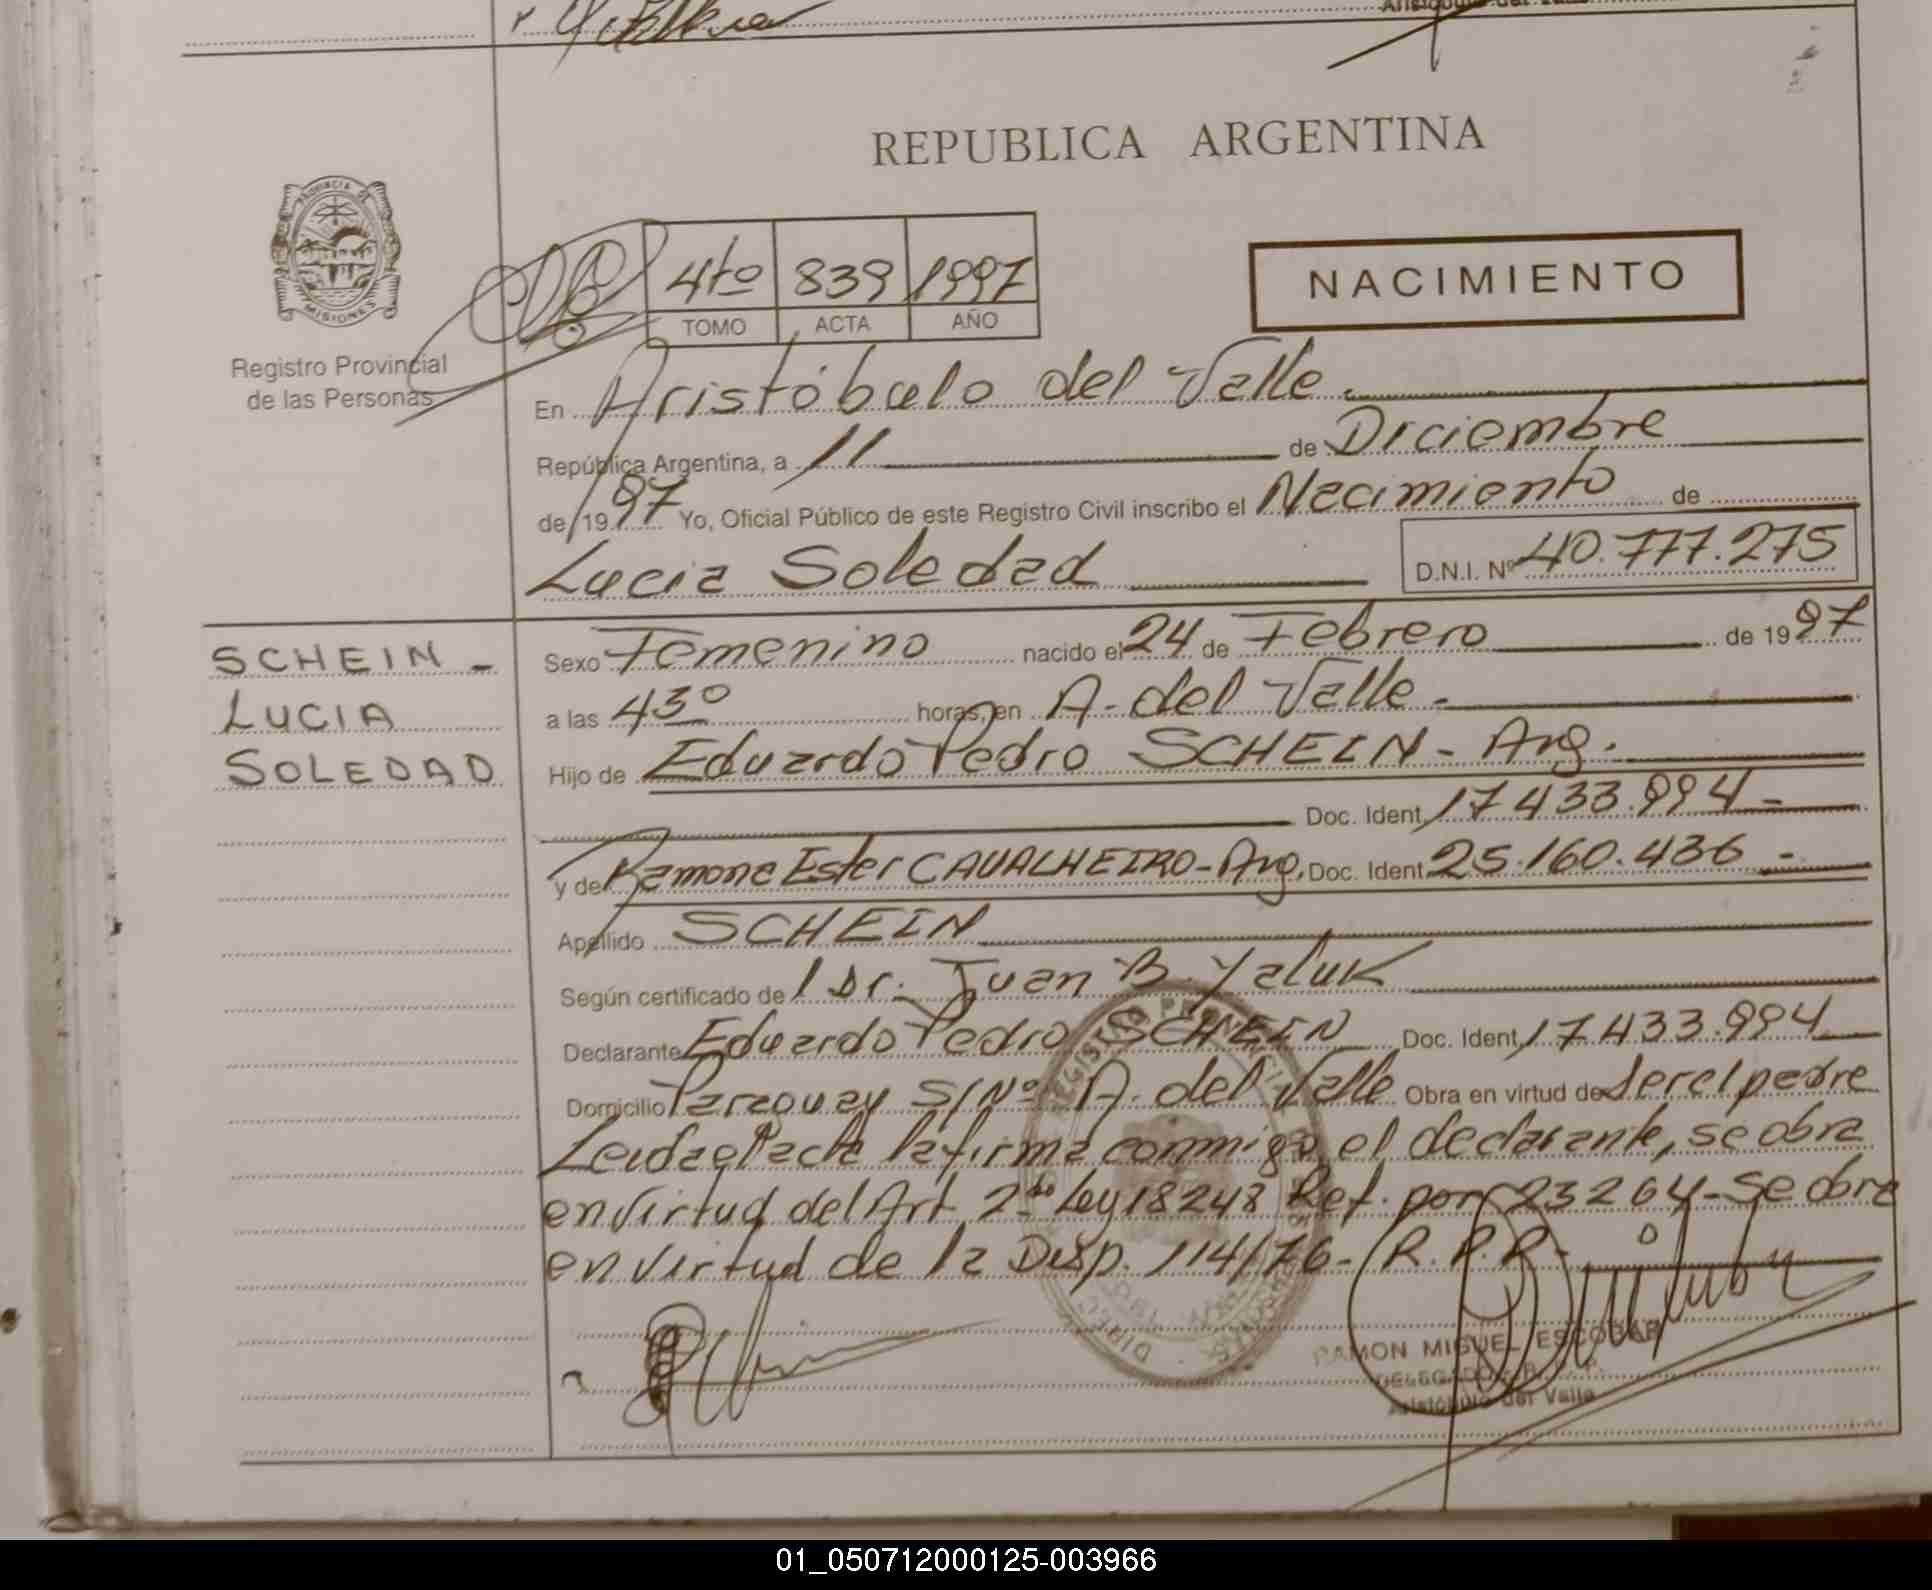 Aristóbulo del Valle
REPUBLICA ARGENTINA
PROVINCIA DE
MISIONES
Registro Provincial
de las Personas
4to 839 1997
TOMO ACTA AÑO
NACIMIENTO
En Aristóbulo del Valle.
República Argentina, a 11 de Diciembre
de 1997 Yo, Oficial Público de este Registro Civil inscribo el Nacimiento de
Lucia Soledad D.N.I. Nº 40.777.275
SCHEIN -
LUCIA
SOLEDAD
Sexo Femenino nacido el 24 de Febrero de 1997
a las 43º horas, en A. del Valle -
Hijo de Eduardo Pedro SCHEIN - Arg.
Doc. Ident. 17433.994 -
y de Ramona Ester CAVALHEIRO - Arg. Doc. Ident. 25.160.436 -
Apellido SCHEIN
Según certificado de l Dr. Juan B. Yaluk
Declarante Eduardo Pedro SCHEIN Doc. Ident. 17433.994
Domicilio Paraguay S/Nº A. del Valle Obra en virtud de ser el padre
Leida el acta la firma conmigo el declarante, se obra
en virtud del Art. 2do Ley 18248 Ref. por 23264 - Se obra
en virtud de la Disp. 114/76 - R.P.P. -
RAMON MIGUEL ESCOBAR
DELEGADO R. P. P.
Aristóbulo del Valle
01_050712000125-003966